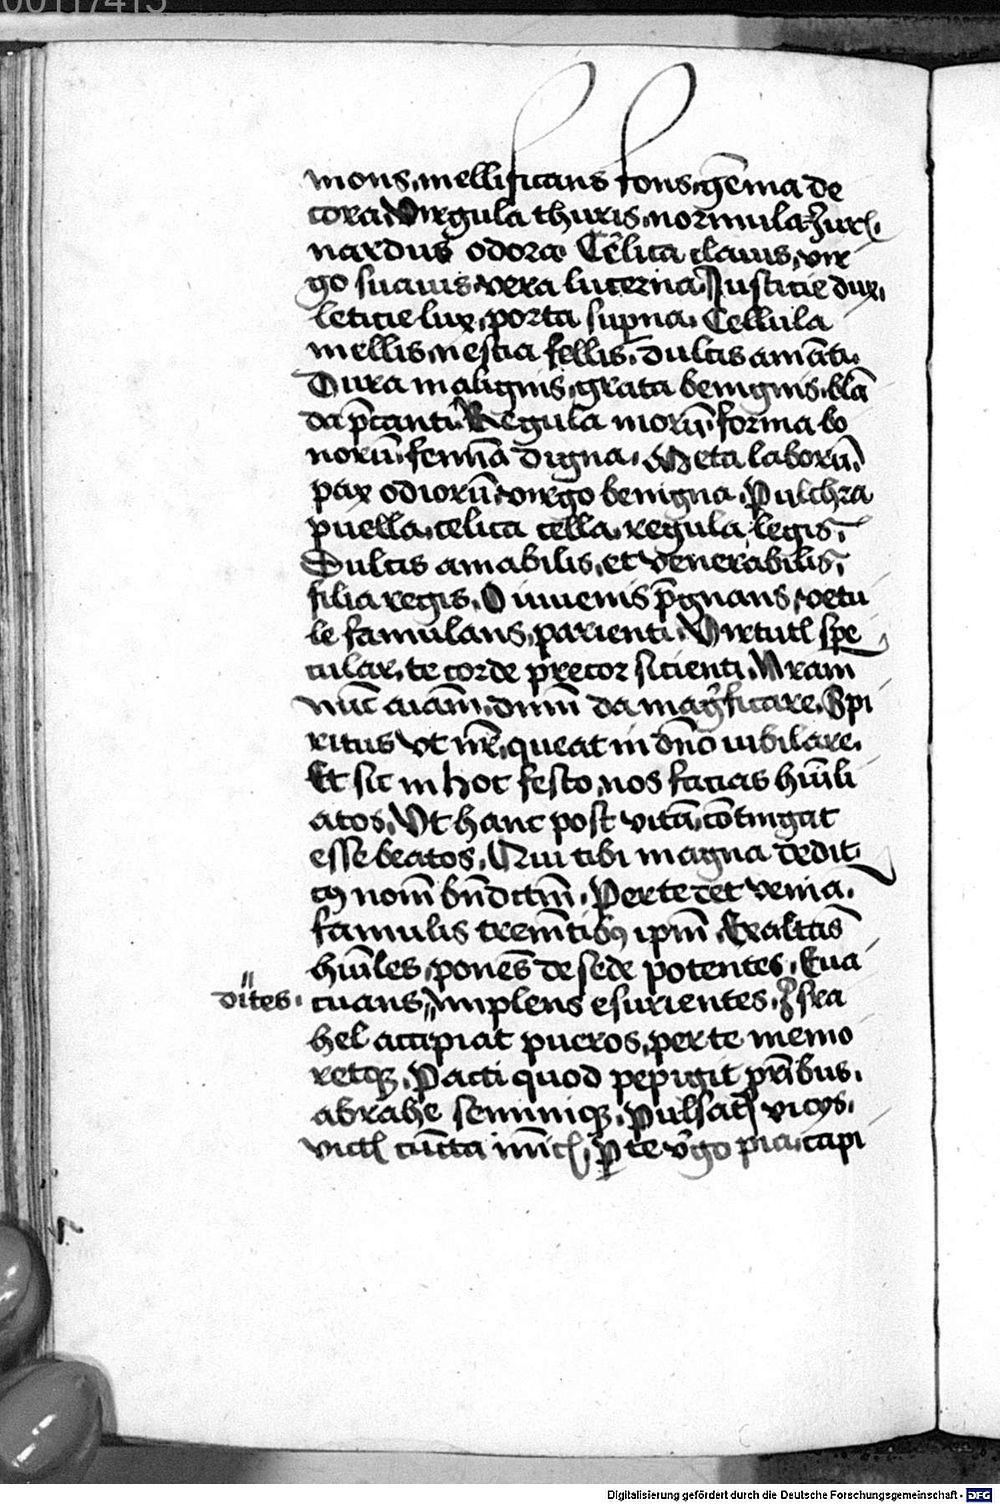 00117415
mons, mellificans fons, gēma de
cora, Virgula thuris, normula
nardus odora. Cēlica clauis, vir
go suauis, vera lucerna. Justicie dux,
leticie lux, porta sup̄na. Cellula
mellis, nescia fellis, dulcis amāti.
Dura malignis, grata benignis, blā
da p̄canti. Regula morū, forma bo
norū, femīa digna. Meta laborū,
pax odiorū, virgo benigna. Pulchra
puella, celica cella, regula legis,
Dulcis amabilis, et venerabilis,
filia regis. O iuuenis p̄gnans, vetu
le famulans, parienti. Virtutꝭ spe
cular, te corde precor sicienti. Nr̄am
nūc aīam, dnm̄ da mag̓ficare. Spi
ritus vt nr̄, queat in dn̄o iubilare.
Et sic in hoc festo, nos facias hūili
atos. Vt hanc post vitā, cōtingat
esse beatos. Qui tibi magna dedit
cꝯ nom̄ bn̄dictm̄. Per te det venia,
famulis trem̄tibꝯ ip̄m. Exaltās
hūiles, ponēs de sede potentes, Eua
dītes. cuans, implens esurientes. Isra
hel accipiat pueros, per te memo
retqꝫ. Pacti quod pepigit pr̄ibus,
abrahe seminiqꝫ. vicijs,
victꝭ cūcta, ꝑ te v̓go pia, capi
Digitalisierung gefördert durch die Deutsche Forschungsgemeinschaft - DFG